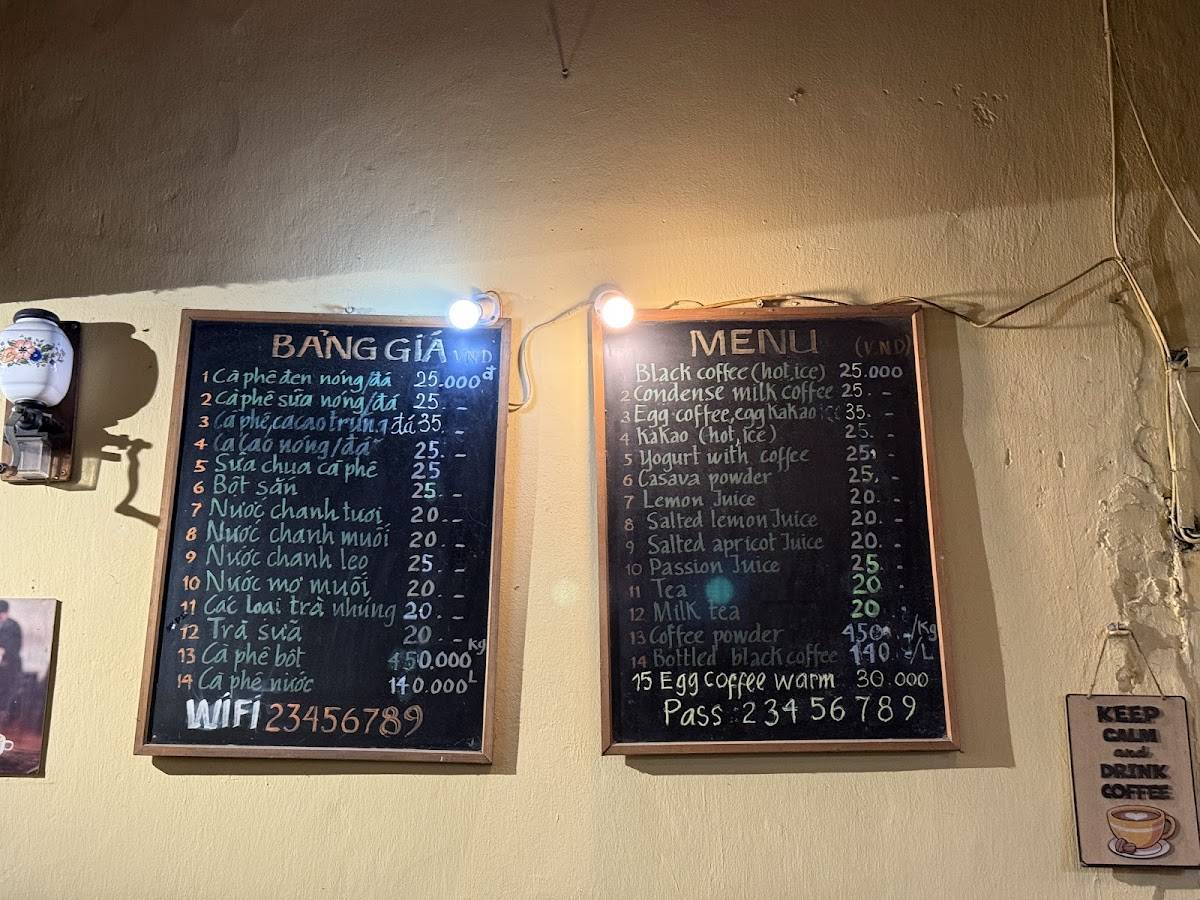 BẢNG GIÁ VND
1 Cà phê đen nóng/đá 25.000đ
2 Cà phê sữa nóng/đá 25. -
3 Cà phê, cacao trứng đá 35. -
4 Ca cao nóng/đá 25. -
5 Sữa chua cà phê 25
6 Bột sắn 25. -
7 Nước chanh tươi 20. -
8 Nước chanh muối 20. -
9 Nước chanh leo 25. -
10 Nước mơ muối 20. -
11 Các loại trà nhúng 20. -
12 Trà sữa 20. -
13 Cà phê bột 450.000kg
14 Cà phê nước 140.000L
WIFI 23456789
MENU (V.N.D)
Black coffee (hot, ice) 25.000
2 Condense milk coffee 25. -
3 Egg coffee, egg kakao ice 35. -
4 kakao (hot, ice) 25. -
5 Yogurt with coffee 25. -
6 Casava powder 25. -
7 Lemon Juice 20. -
8 Salted lemon Juice 20. -
9 Salted apricot Juice 20. -
10 Passion Juice 25. -
11 Tea 20 -
12 Milk tea 20 -
13 Coffee powder 450. -/Kg
14 Bottled black coffee 140. -/L
15 Egg coffee warm 30.000
Pass: 23456789
KEEP
CALM
and
DRINK
COFFEE